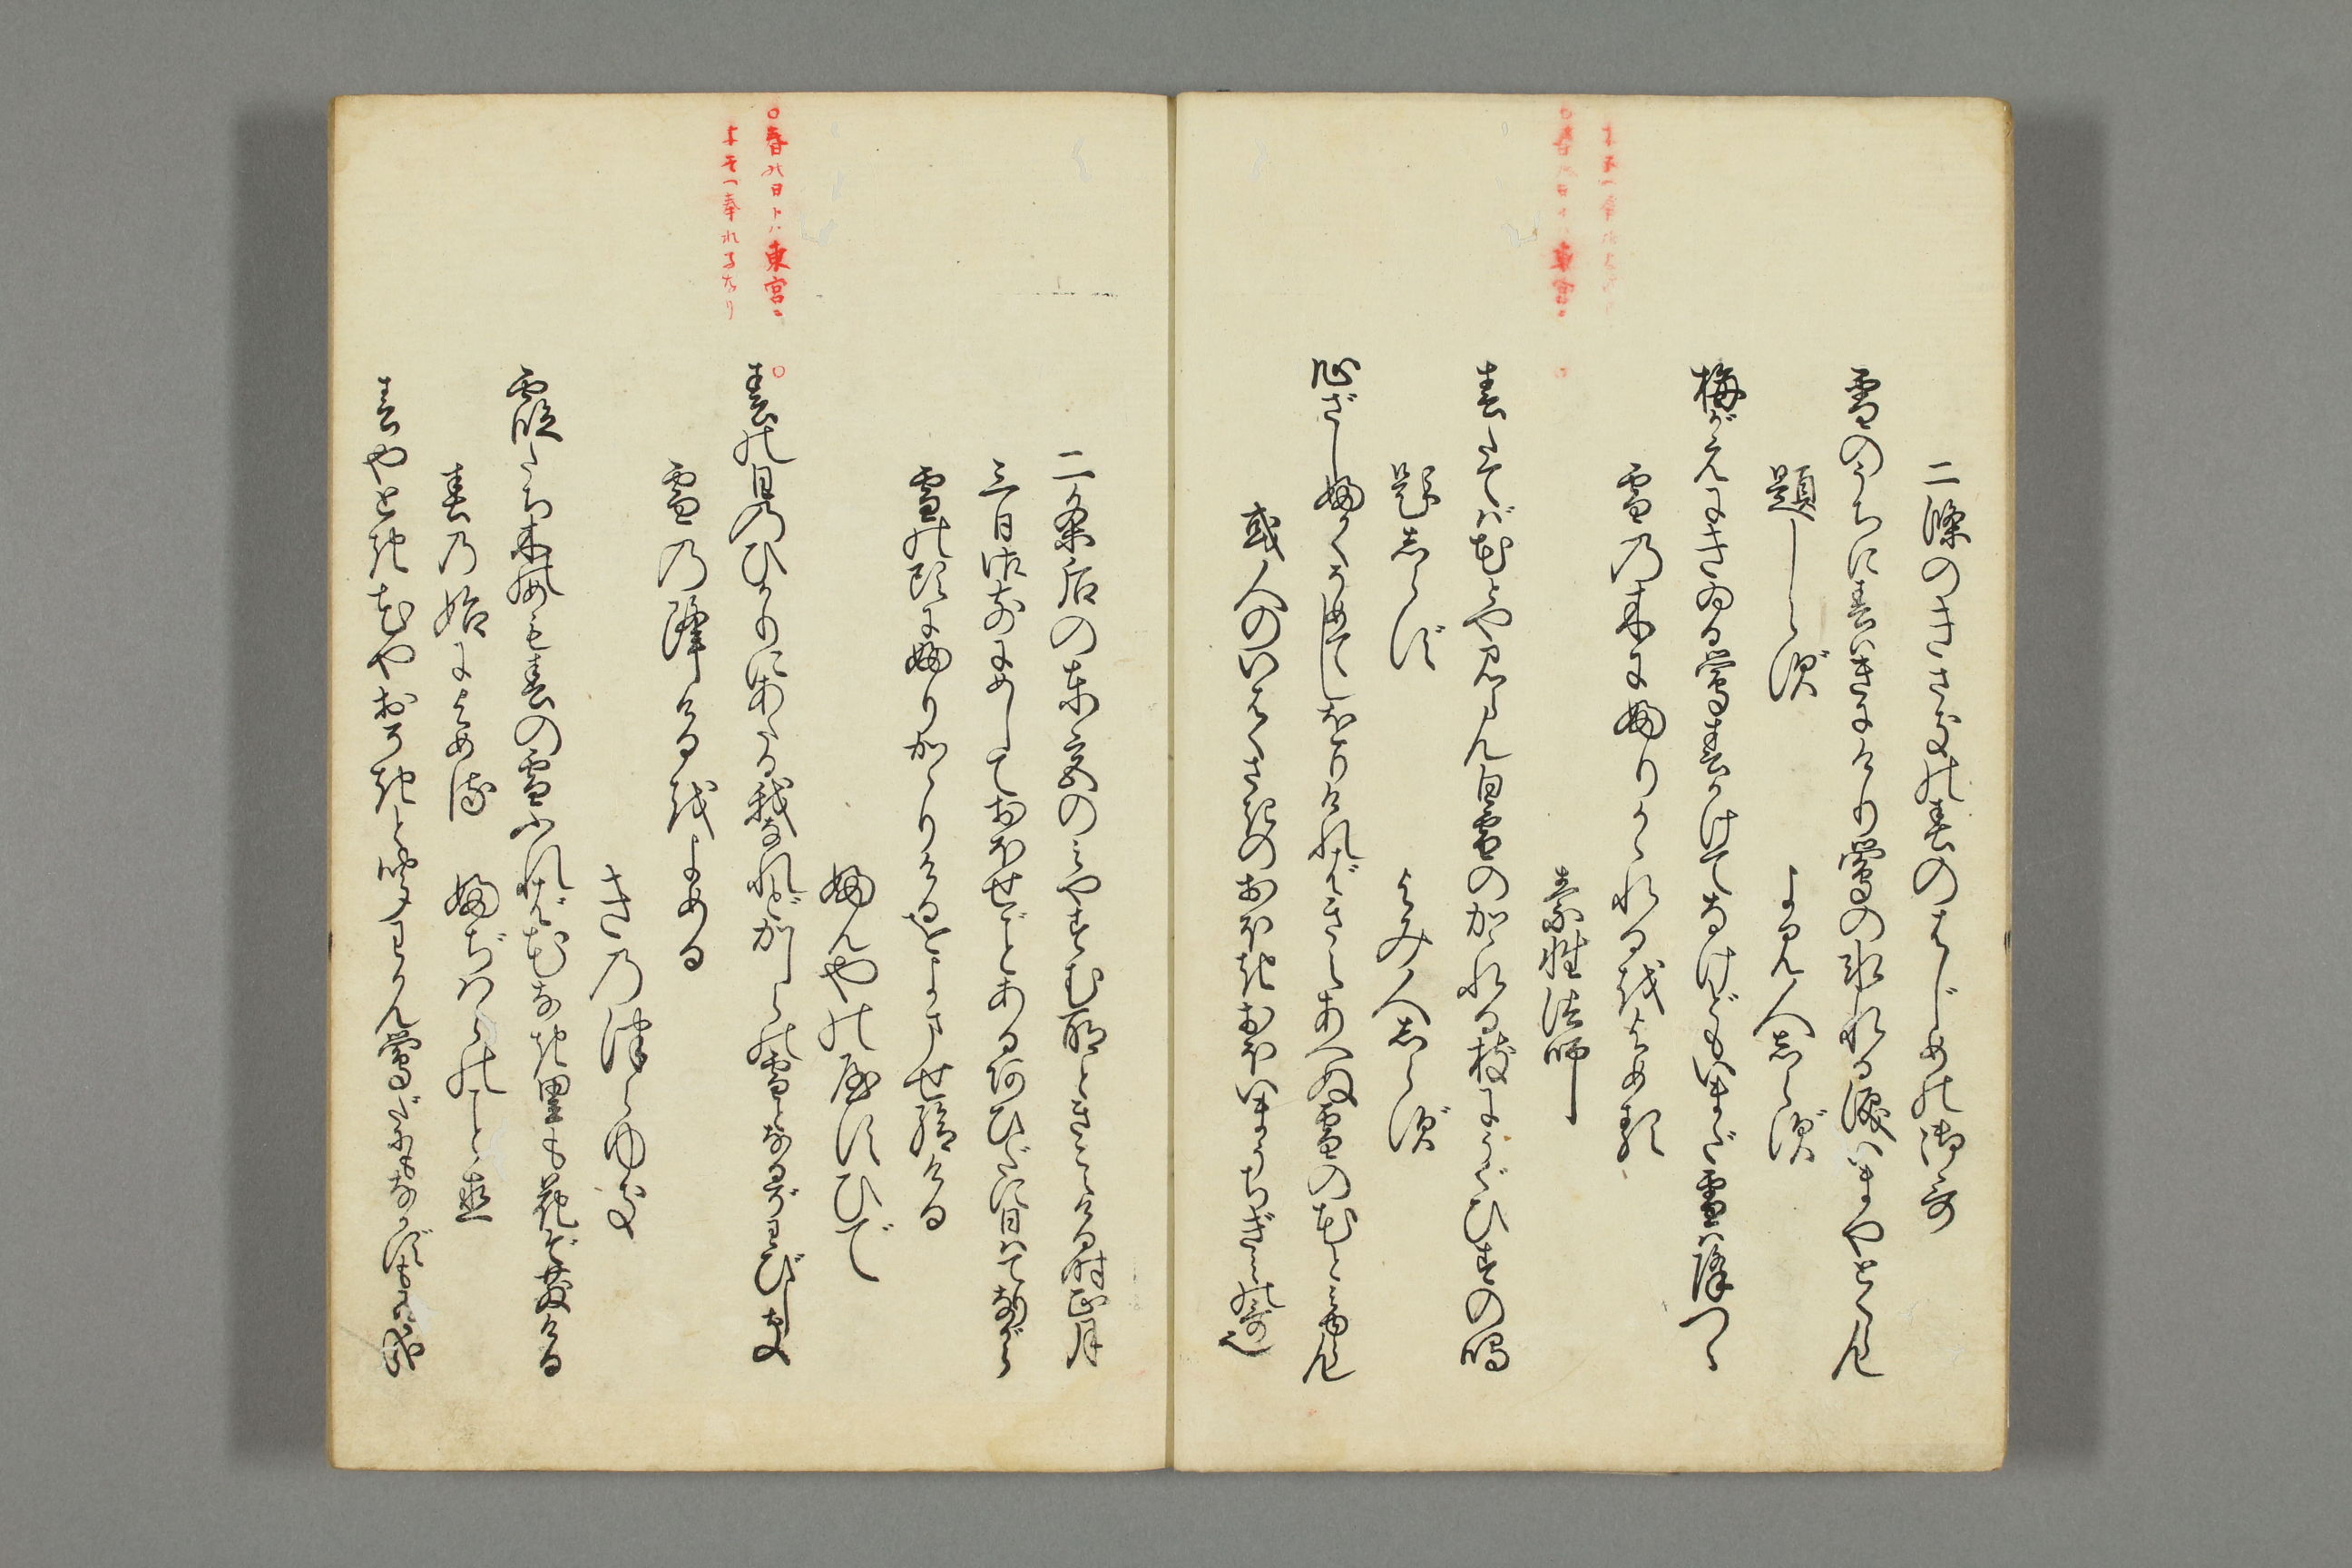 二條のきさきの春のはじめの御哥
雪のうちに春はきにけり鶯の氷れる涙いまやとくらん
題しらず　よみ人しらず
梅がえにきゐる鶯春かけてなけどもいまだ雪は降つゝ
雪の木にふりかゝれるをよめる
素性法師
春たてば花とや見らん白雪のかゝれる枝にうぐひすの鳴
題しらず　よみ人しらず
心ざしふかくそめてしをりければきえあへぬ雪の花と見ゆらん
或人のいはくさきのおほきおほいまうちぎみの哥也
二条后の東宮のみやすむ所ときこえける時正月
三日御前にめしておほせごとあるあひだに日はてりながら
雪の頭にふりかゝりけるをよませ給ける
ふんやのやすひで
春の日のひかりにあたる我なれどかしらの雪となるぞわびしき
雪の降けるをよめる
きのつらゆき
霞たち木のめも春の雪ふれば花なき里も花ぞ散ける
春の始によめる　ふぢはらのことなほ
春やとき花やおそきと聞わかん鶯だにもなかずもあるかな
○春の日トハ東宮ニ
よそへ奉れるなり